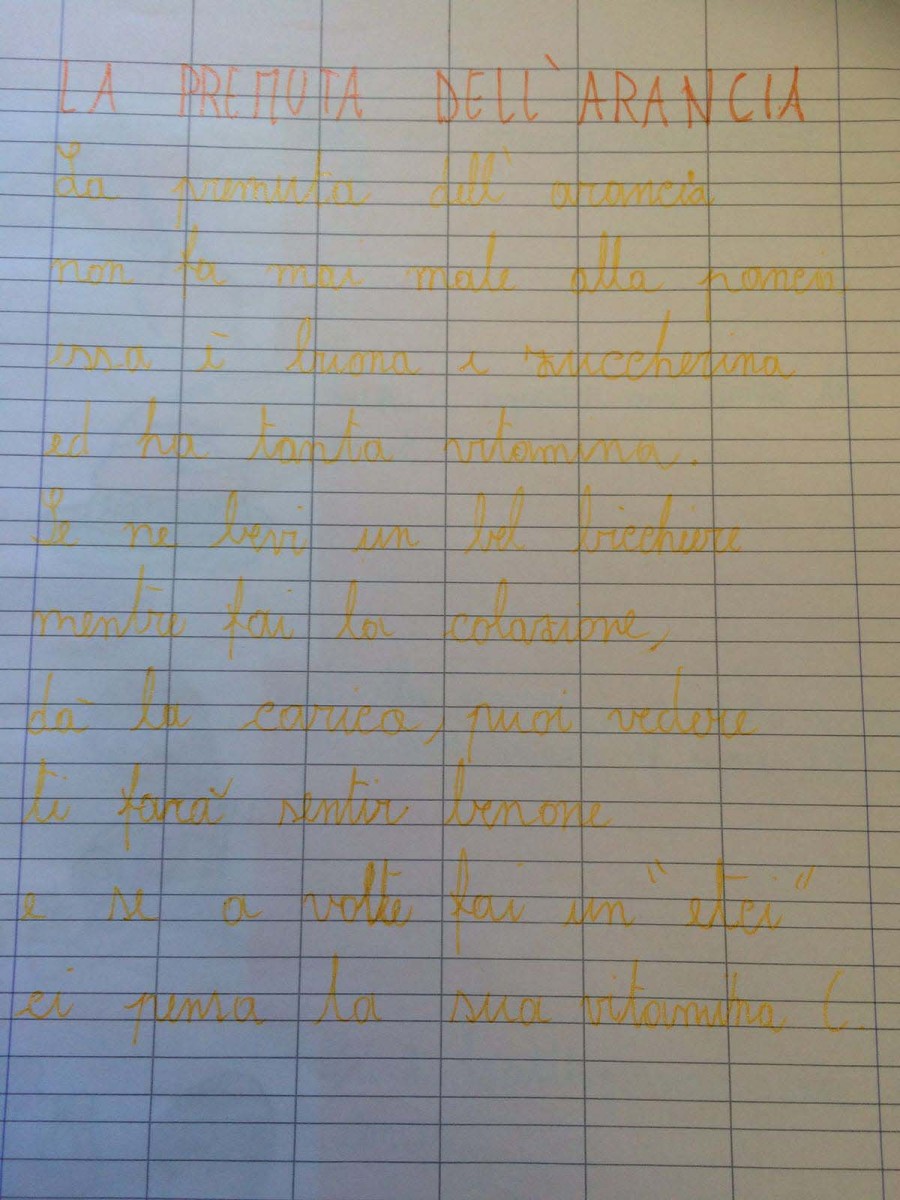 LA PREMUTA DELL'ARANCIA
La premuta dell' arancia
non fa mai male alla pancia
essa è buona e zuccherina
ed ha tanta vitamina.
Se ne bevi un bel bicchiere
mentre fai la colazione,
dà la carica, puoi vedere
ti farà sentir benone
e se a volte fai un "etci"
ci pensa la sua vitamina C.